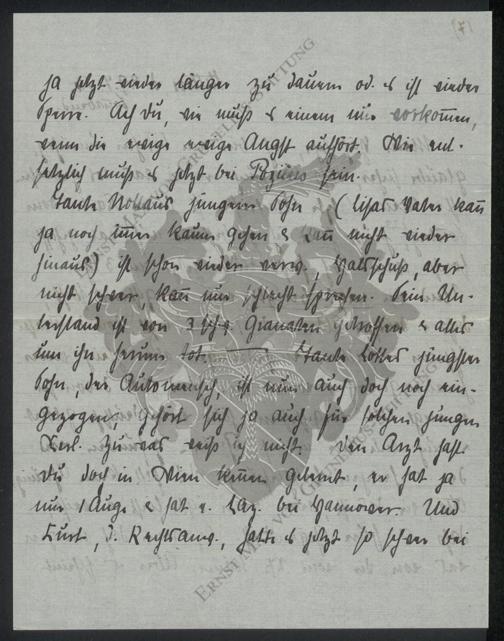 7)
ja jetzt wieder länger zu dauern od. es ist wieder
Sperre. Ach du, wie muß es einem nur vorkommen,
wenn die ewige ewige Angst aufhört. Wie ent-
setzlich muß es jetzt bei sein.
Tante jüngerer Sohn (Lisas Vater kann
ja noch immer kaum gehen & kann nicht wieder
hinaus) ist schon wieder verw., Halsschuß, aber
nicht schwer, kann nur schlecht sprechen. Sein Un-
terstand ist von 3 Granaten getroffen & alles
um ihn herum tot. Tante Lottes jüngster
Sohn, der Automensch, ist nun auch doch noch ein-
gezogen, gehört sich ja auch für solchen jungen
Kerl. Zu was weiß ich nicht. Den Arzt hast
du doch in Wien kennen gelernt, er hat ja
nur 1 Auge & hat e. Laz. bei Hannover. Und
Kurt, d. Rechtsanw., hatte es jetzt so schwer bei
ERNST MAX VON GRUNELIUS-STIFTUNG